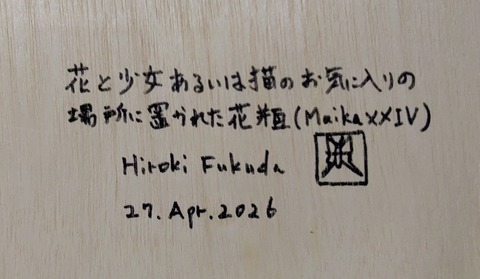 花と少女あるいは猫のお気に入りの
場所に置かれた花瓶(Maika XXIV)
Hiroki Fukuda
27. Apr. 2026